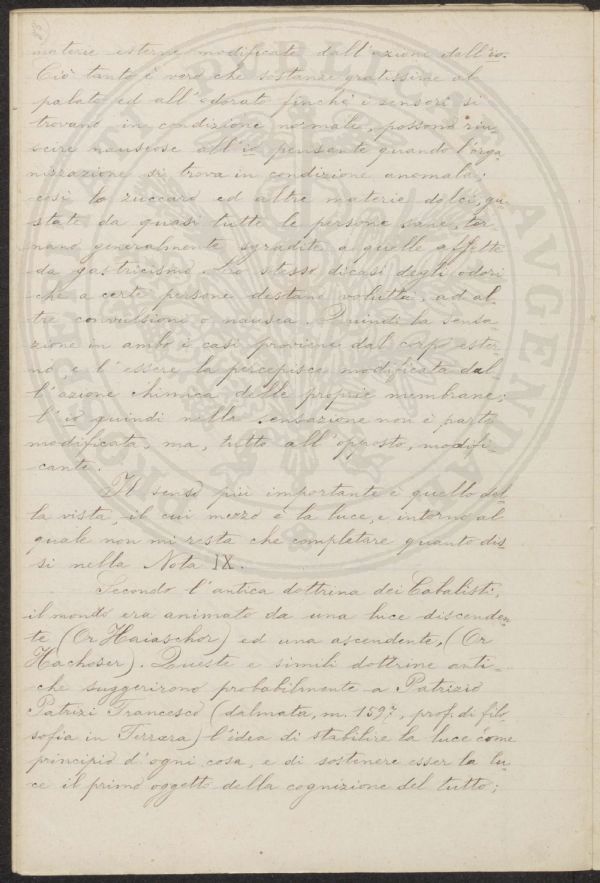 83
materie esterne modificate dall'azione dall'io.
Ciò tanto è vero che sostanze gratissime al
palato ed all'odorato finchè i sensori si
trovano in condizione normale, possono riu-
scire nauseose all'io pensante quando l'orga-
nizzazione si trova in condizione anomala;
così lo zuccaro ed altre materie dolci, gu-
state da quasi tutte le persone sane, tor-
nano generalmente sgradite a quelle affette
da gastricismo. Lo stesso dicasi degli odori
che a certe persone destano voluttà, ad al-
tre convulsioni o nausea. Quindi la sensa-
zione in ambo i casi proviene dal corpo ester-
no, e l'essere la percepisce modificata dal-
l'azione chimica delle proprie membrane;
l'io quindi nella sensazione non è parte
modificata, ma, tutto all'opposto, modifi-
cante.
Il senso più importante è quello del-
la vista, il cui mezzo è la luce, e intorno al
quale non mi resta che completare quanto dis-
si nella Nota IX.
Secondo l'antica dottrina dei Cabalisti,
il mondo era animato da una luce discenden-
te (Or Haiaschor) ed una ascendente, (Or
Hachoser). Queste e simili dottrine anti-
che suggerirono probabilmente a Patrizio
Patrizi Francesco (dalmata, m. 1597, prof. di filo-
sofia in Ferrara) l'idea di stabilire la luce come
principio d'ogni cosa, e di sostenere esser la lu-
ce il primo oggetto della cognizione del tutto;